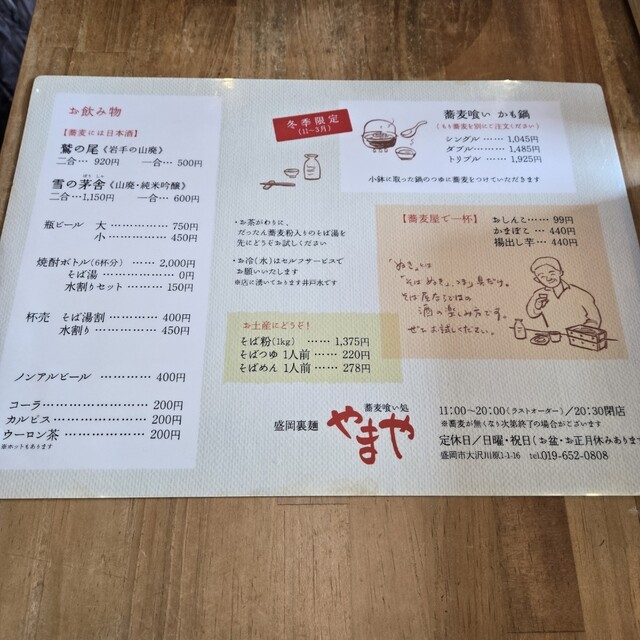 お飲み物
【蕎麦には日本酒】
鷲の尾《岩手の山廃》
二合… 920円 一合… 500円
雪の茅舎《山廃・純米吟醸》
二合…1,150円 一合… 600円
瓶ビール 大 ………… 750円
小 ………… 450円
焼酎ボトル(6杯分) …… 2,000円
そば湯 …………… 0円
水割りセット ……… 150円
杯売 そば湯割 ………… 400円
水割り …………… 450円
ノンアルビール ………… 400円
コーラ ……………… 200円
カルピス …………… 200円
ウーロン茶 ………… 200円
※ホットもあります
冬季限定
(11~3月)
蕎麦喰い かも鍋
(もり蕎麦を別にご注文ください)
シングル …… 1,045円
ダブル …… 1,485円
トリプル …… 1,925円
小鉢に取った鍋のつゆに蕎麦をつけていただきます
・お茶がわりに、
だったん蕎麦粉入りのそば湯を
先にどうぞお試しください
・お冷(水)はセルフサービスで
お願いいたします
※店に湧いております井戸水です
【蕎麦屋で一杯】 おしんこ…… 99円
かまぼこ … 440円
揚出し芋 … 440円
「ぬき」とは
「そばぬき」、つまり具だけ。
そば屋ならではの
酒の楽しみ方です。
ぜひお試しください。
お土産にどうぞ!
そば粉(1kg) …… 1,375円
そばつゆ 1人前 …… 220円
そばめん 1人前 …… 278円
盛岡裏麺
蕎麦喰い処
やまや
11:00~20:00(ラストオーダー)/20:30閉店
※蕎麦が無くなり次第終了の場合がございます
定休日/日曜・祝日(お盆・お正月休みあります
盛岡市大沢川原2-1-16 tel.019-652-0808